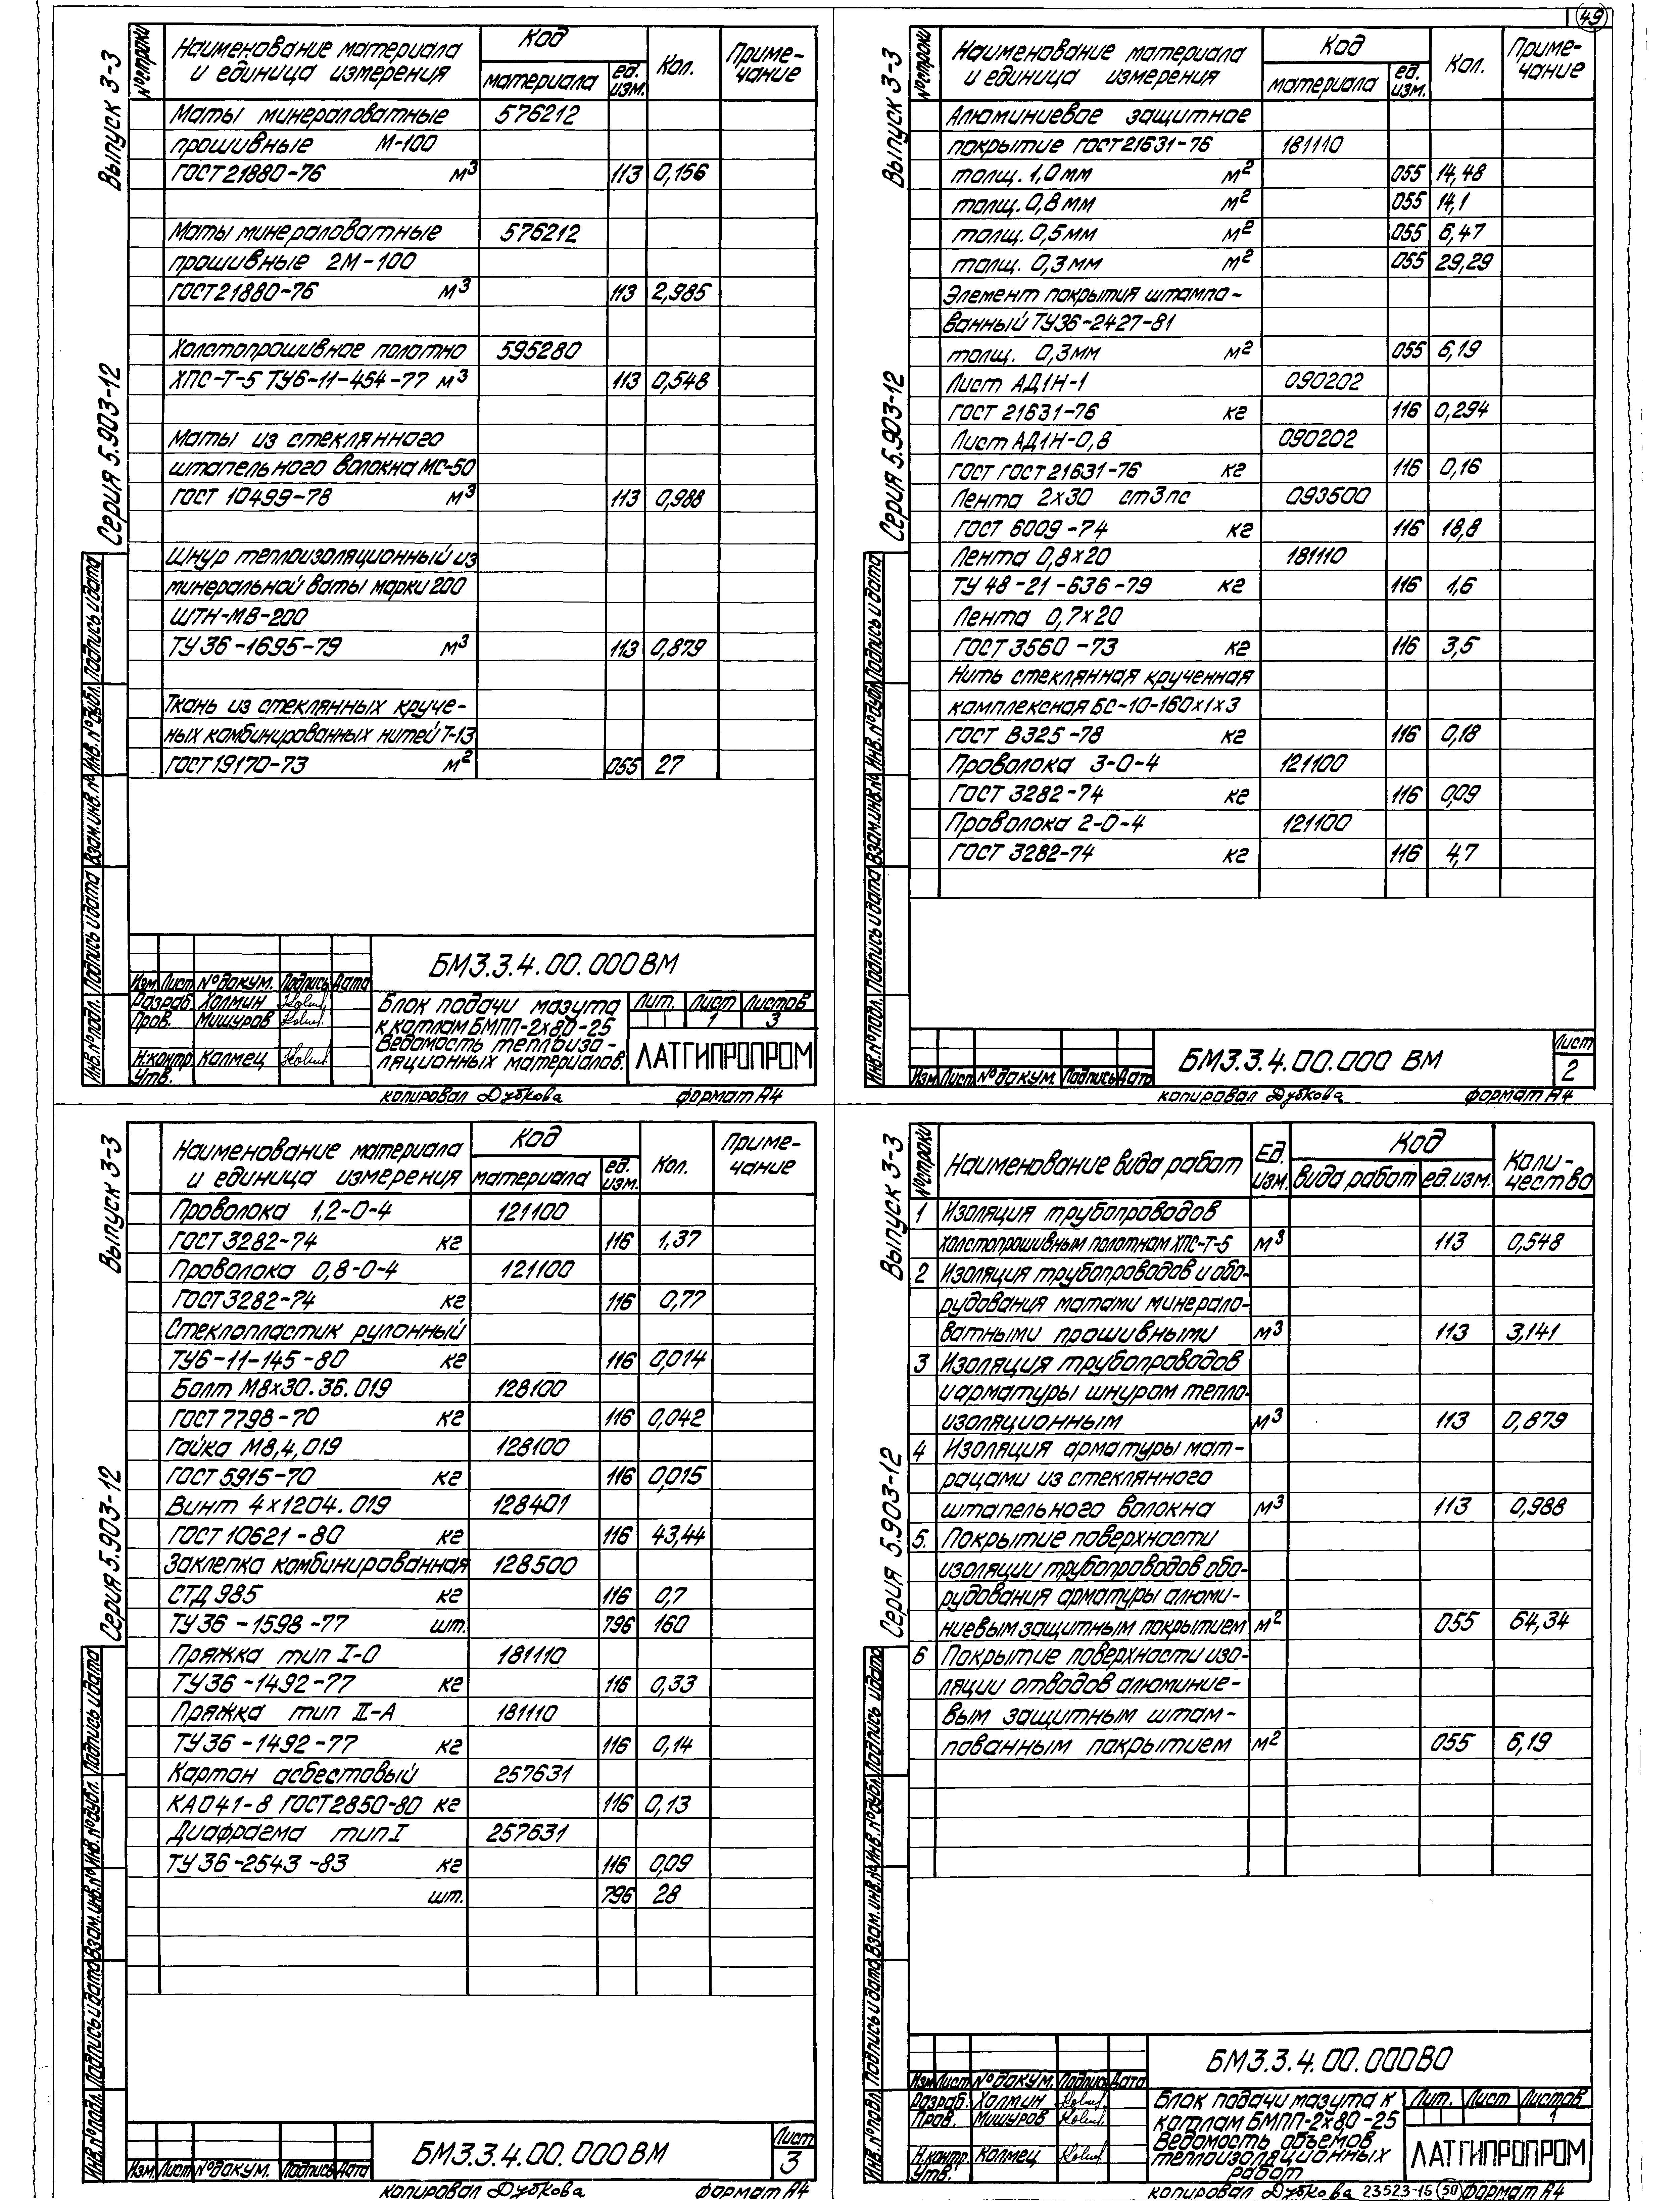 49
Выпуск 3-3
Серия 5.903-12
№ строки | Наименование материала и единица измерения | Код материала | Код ед. изм. | Кол. | Приме-чание
Маты минераловатные 576212
прошивные М-100
ГОСТ 21880-76 м³ 113 0,156
Маты минераловатные 576212
прошивные 2М-100
ГОСТ 21880-76 м³ 113 2,985
Холстопрошивное полотно 595280
ХПС-Т-5 ТУ6-11-454-77 м³ 113 0,548
Маты из стеклянного
штапельного волокна МС-50
ГОСТ 10499-78 м³ 113 0,988
Шнур теплоизоляционный из
минеральной ваты марки 200
ШТН-МВ-200
ТУ 36-1695-79 м³ 113 0,879
Ткань из стеклянных круче-
ных комбинированных нитей Т-13
ГОСТ 19170-73 м² 055 27
Инв.№ подл. Подпись и дата Взам.инв.№ Инв.№ дубл. Подпись и дата
БМ3.3.4.00.000ВМ
Изм. Лист № докум. Подпись Дата
Разраб. Холмин
Пров. Мишуров
Н.контр. Калмец
Утв.
Блок подачи мазута
к котлам БМПП-2х80-25
Ведомость теплоизо-
ляционных материалов.
Лит. Лист Листов
1 3
ЛАТГИПРОПРОМ
копировал Дубкова формат А4
Выпуск 3-3
Серия 5.903-12
№ строки | Наименование материала и единица измерения | Код материала | Код ед. изм. | Кол. | Приме-чание
Алюминиевое защитное
покрытие ГОСТ 21631-76 181110
толщ. 1,0мм м² 055 14,48
толщ. 0,8мм м² 055 14,1
толщ. 0,5мм м² 055 6,47
толщ. 0,3мм м² 055 29,29
Элемент покрытия штампо-
ванный ТУ36-2427-81
толщ. 0,3мм м² 055 6,19
Лист АД1Н-1 090202
ГОСТ 21631-76 кг 116 0,294
Лист АД1Н-0,8 090202
ГОСТ ГОСТ 21631-76 кг 116 0,16
Лента 2х30 ст3пс 093500
ГОСТ 6009-74 кг 116 18,8
Лента 0,8х20 181110
ТУ 48-21-636-79 кг 116 1,6
Лента 0,7х20
ГОСТ 3560-73 кг 116 3,5
Нить стеклянная крученная
комплексная БС-10-160х1х3
ГОСТ 8325-78 кг 116 0,18
Проволока 3-0-4 121100
ГОСТ 3282-74 кг 116 0,09
Проволока 2-0-4 121100
ГОСТ 3282-74 кг 116 4,7
Инв.№ подл. Подпись и дата Взам.инв.№ Инв.№ дубл. Подпись и дата
Изм. Лист № докум. Подпись Дата
БМ3.3.4.00.000 ВМ
Лист
2
копировал Дубкова формат А4
Выпуск 3-3
Серия 5.903-12
Наименование материала и единица измерения | Код материала | Код ед. изм. | Кол. | Приме-чание
Проволока 1,2-0-4 121100
ГОСТ 3282-74 кг 116 1,37
Проволока 0,8-0-4 121100
ГОСТ 3282-74 кг 116 0,77
Стеклопластик рулонный
ТУ6-11-145-80 кг 116 0,014
Болт М8х30.36.019 128100
ГОСТ 7798-70 кг 116 0,042
Гайка М8,4,019 128100
ГОСТ 5915-70 кг 116 0,015
Винт 4х1204.019 128401
ГОСТ 10621-80 кг 116 43,44
Заклепка комбинированная 128500
СТД 985 кг 116 0,7
ТУ 36-1598-77 шт. 796 160
Пряжка тип I-0 181110
ТУ 36-1492-77 кг 116 0,33
Пряжка тип II-А 181110
ТУ 36-1492-77 кг 116 0,14
Картон асбестовый 257631
КАО41-8 ГОСТ 2850-80 кг 116 0,13
Диафрагма тип I 257631
ТУ 36-2543-83 кг 116 0,09
шт. 796 28
Инв.№ подл. Подпись и дата Взам.инв.№ Инв.№ дубл. Подпись и дата
Изм. Лист № докум. Подпись Дата
БМ3.3.4.00.000ВМ
Лист
3
копировал Дубкова формат А4
Выпуск 3-3
Серия 5.903-12
№ строки | Наименование вида работ | Ед. изм. | Код вида работ | Код ед.изм. | Коли-чество
1 Изоляция трубопроводов
холстопрошивным полотном ХПС-Т-5 м³ 113 0,548
2 Изоляция трубопроводов и обо-
рудования матами минерало-
ватными прошивными м³ 113 3,141
3 Изоляция трубопроводов
и арматуры шнуром тепло-
изоляционным м³ 113 0,879
4 Изоляция арматуры мат-
рацами из стеклянного
штапельного волокна м³ 113 0,988
5. Покрытие поверхности
изоляции трубопроводов обо-
рудования арматуры алюми-
ниевым защитным покрытием м² 055 64,34
6 Покрытие поверхности изо-
ляции отводов алюминие-
вым защитным штам-
пованным покрытием м² 055 6,19
Инв.№ подл. Подпись и дата Взам.инв.№ Инв.№ дубл. Подпись и дата
БМ3.3.4.00.000ВО
Изм. Лист № докум. Подпись Дата
Разраб. Холмин
Пров. Мишуров
Н.контр. Калмец
Утв.
Блок подачи мазута к
котлам БМПП-2х80-25
Ведомость объемов
теплоизоляционных
работ
Лит. Лист Листов
1
ЛАТГИПРОПРОМ
копировал Дубкова 23523-16 50 формат А4